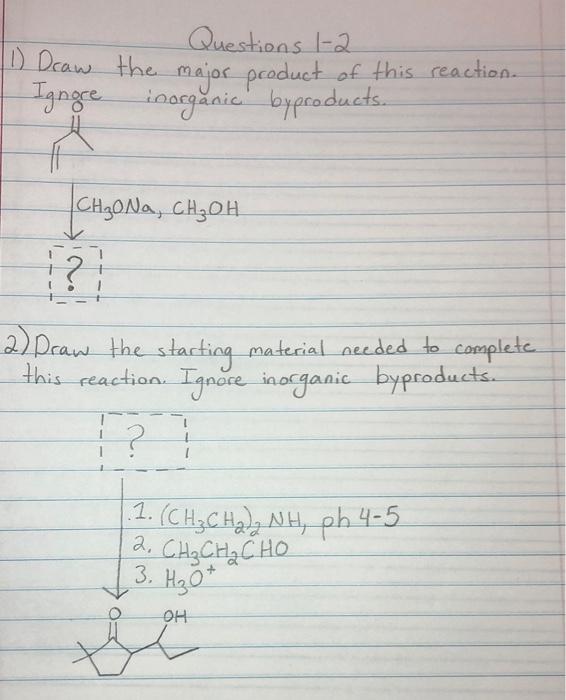 Questions 1-2
1) Draw the major product of this reaction.
Ignore inorganic byproducts.
O
CH₃ONa, CH₃OH
?
2) Draw the starting material needed to complete
this reaction. Ignore inorganic byproducts.
?
1. (CH₃CH₂)₂ NH, ph 4-5
2. CH₃CH₂CHO
3. H₃O⁺
O OH